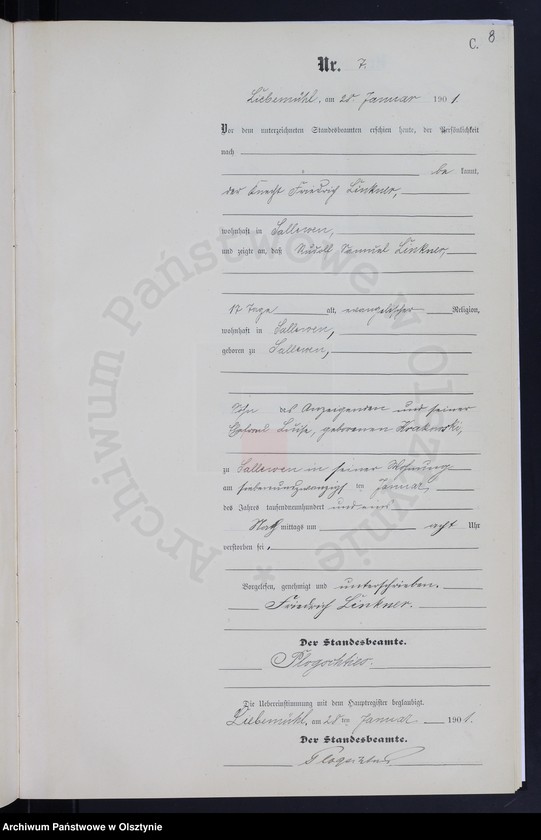 C. 8
Nr. 7.
Liebemühl, am 28 Januar 1901.
Vor dem unterzeichneten Standesbeamten erschien heute, der Persönlichkeit
nach
be kannt,
der Knecht Friedrich Linkner,
wohnhaft in Sallewen,
und zeigte an, daß Rudolf Samuel Linkner,
17 Tage alt, evangelischer Religion,
wohnhaft in Sallewen,
geboren zu Sallewen,
Sohn des Anzeigenden und seiner
Ehefrau Luise, geborenen Krakowski,
zu Sallewen in seiner Wohnung
am siebenundzwanzigsten Januar
des Jahres tausendneunhundert und eins
Nachmittags um acht Uhr
verstorben sei.
Vorgelesen, genehmigt und unterschrieben.
Friedrich Linkner.
Der Standesbeamte.
Die Uebereinstimmung mit dem Hauptregister beglaubigt.
Liebemühl, am 28ten Januar 1901.
Der Standesbeamte.
Archiwum Państwowe w Olsztynie
Archiwum Państwowe w Olsztynie